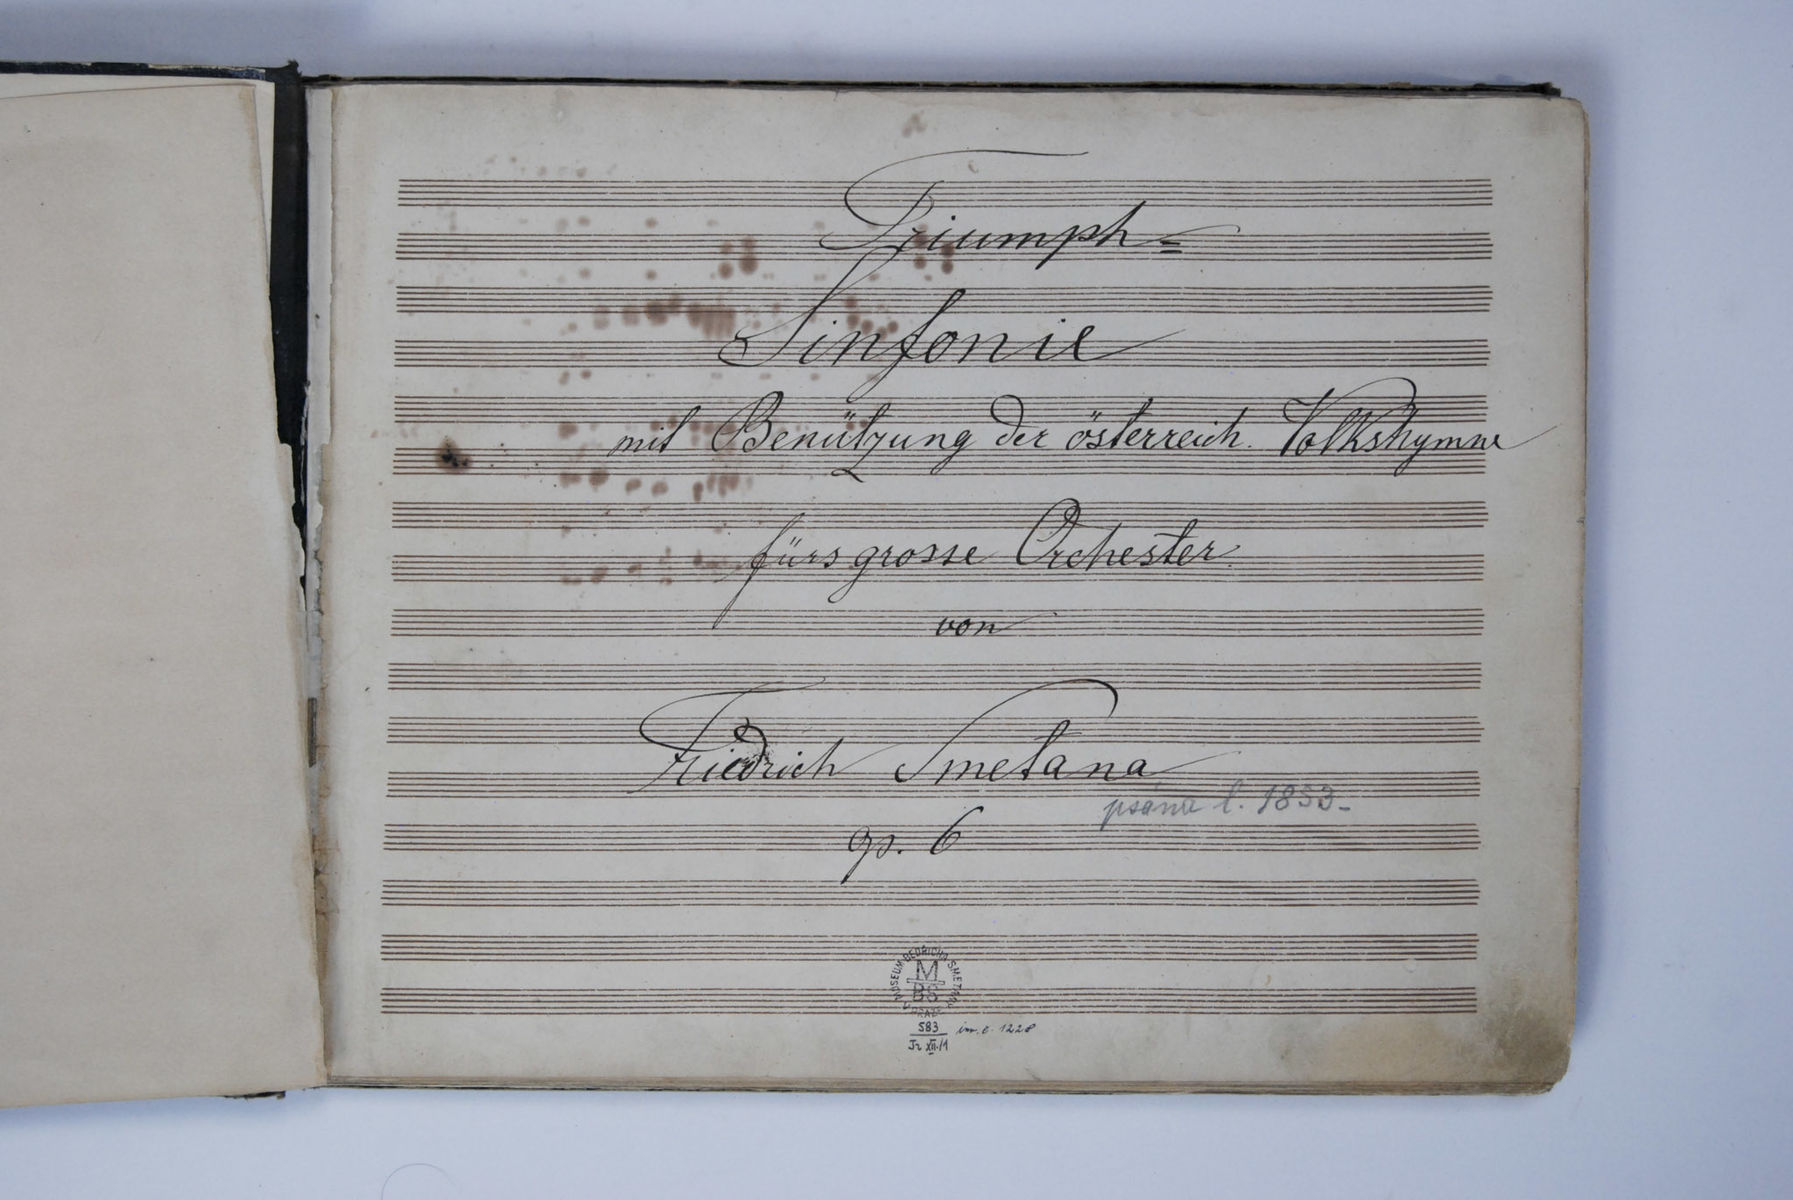 Triumph=
Sinfonie
mit Benützung der österreich. Volkshymne
fürs grosse Orchester
von
Friedrich Smetana
psána l. 1853-
op. 6
MUSEUM BEDŘICHA SMETANY V PRAZE
M
BS
583 inv. č. 1228
Tr XII/1